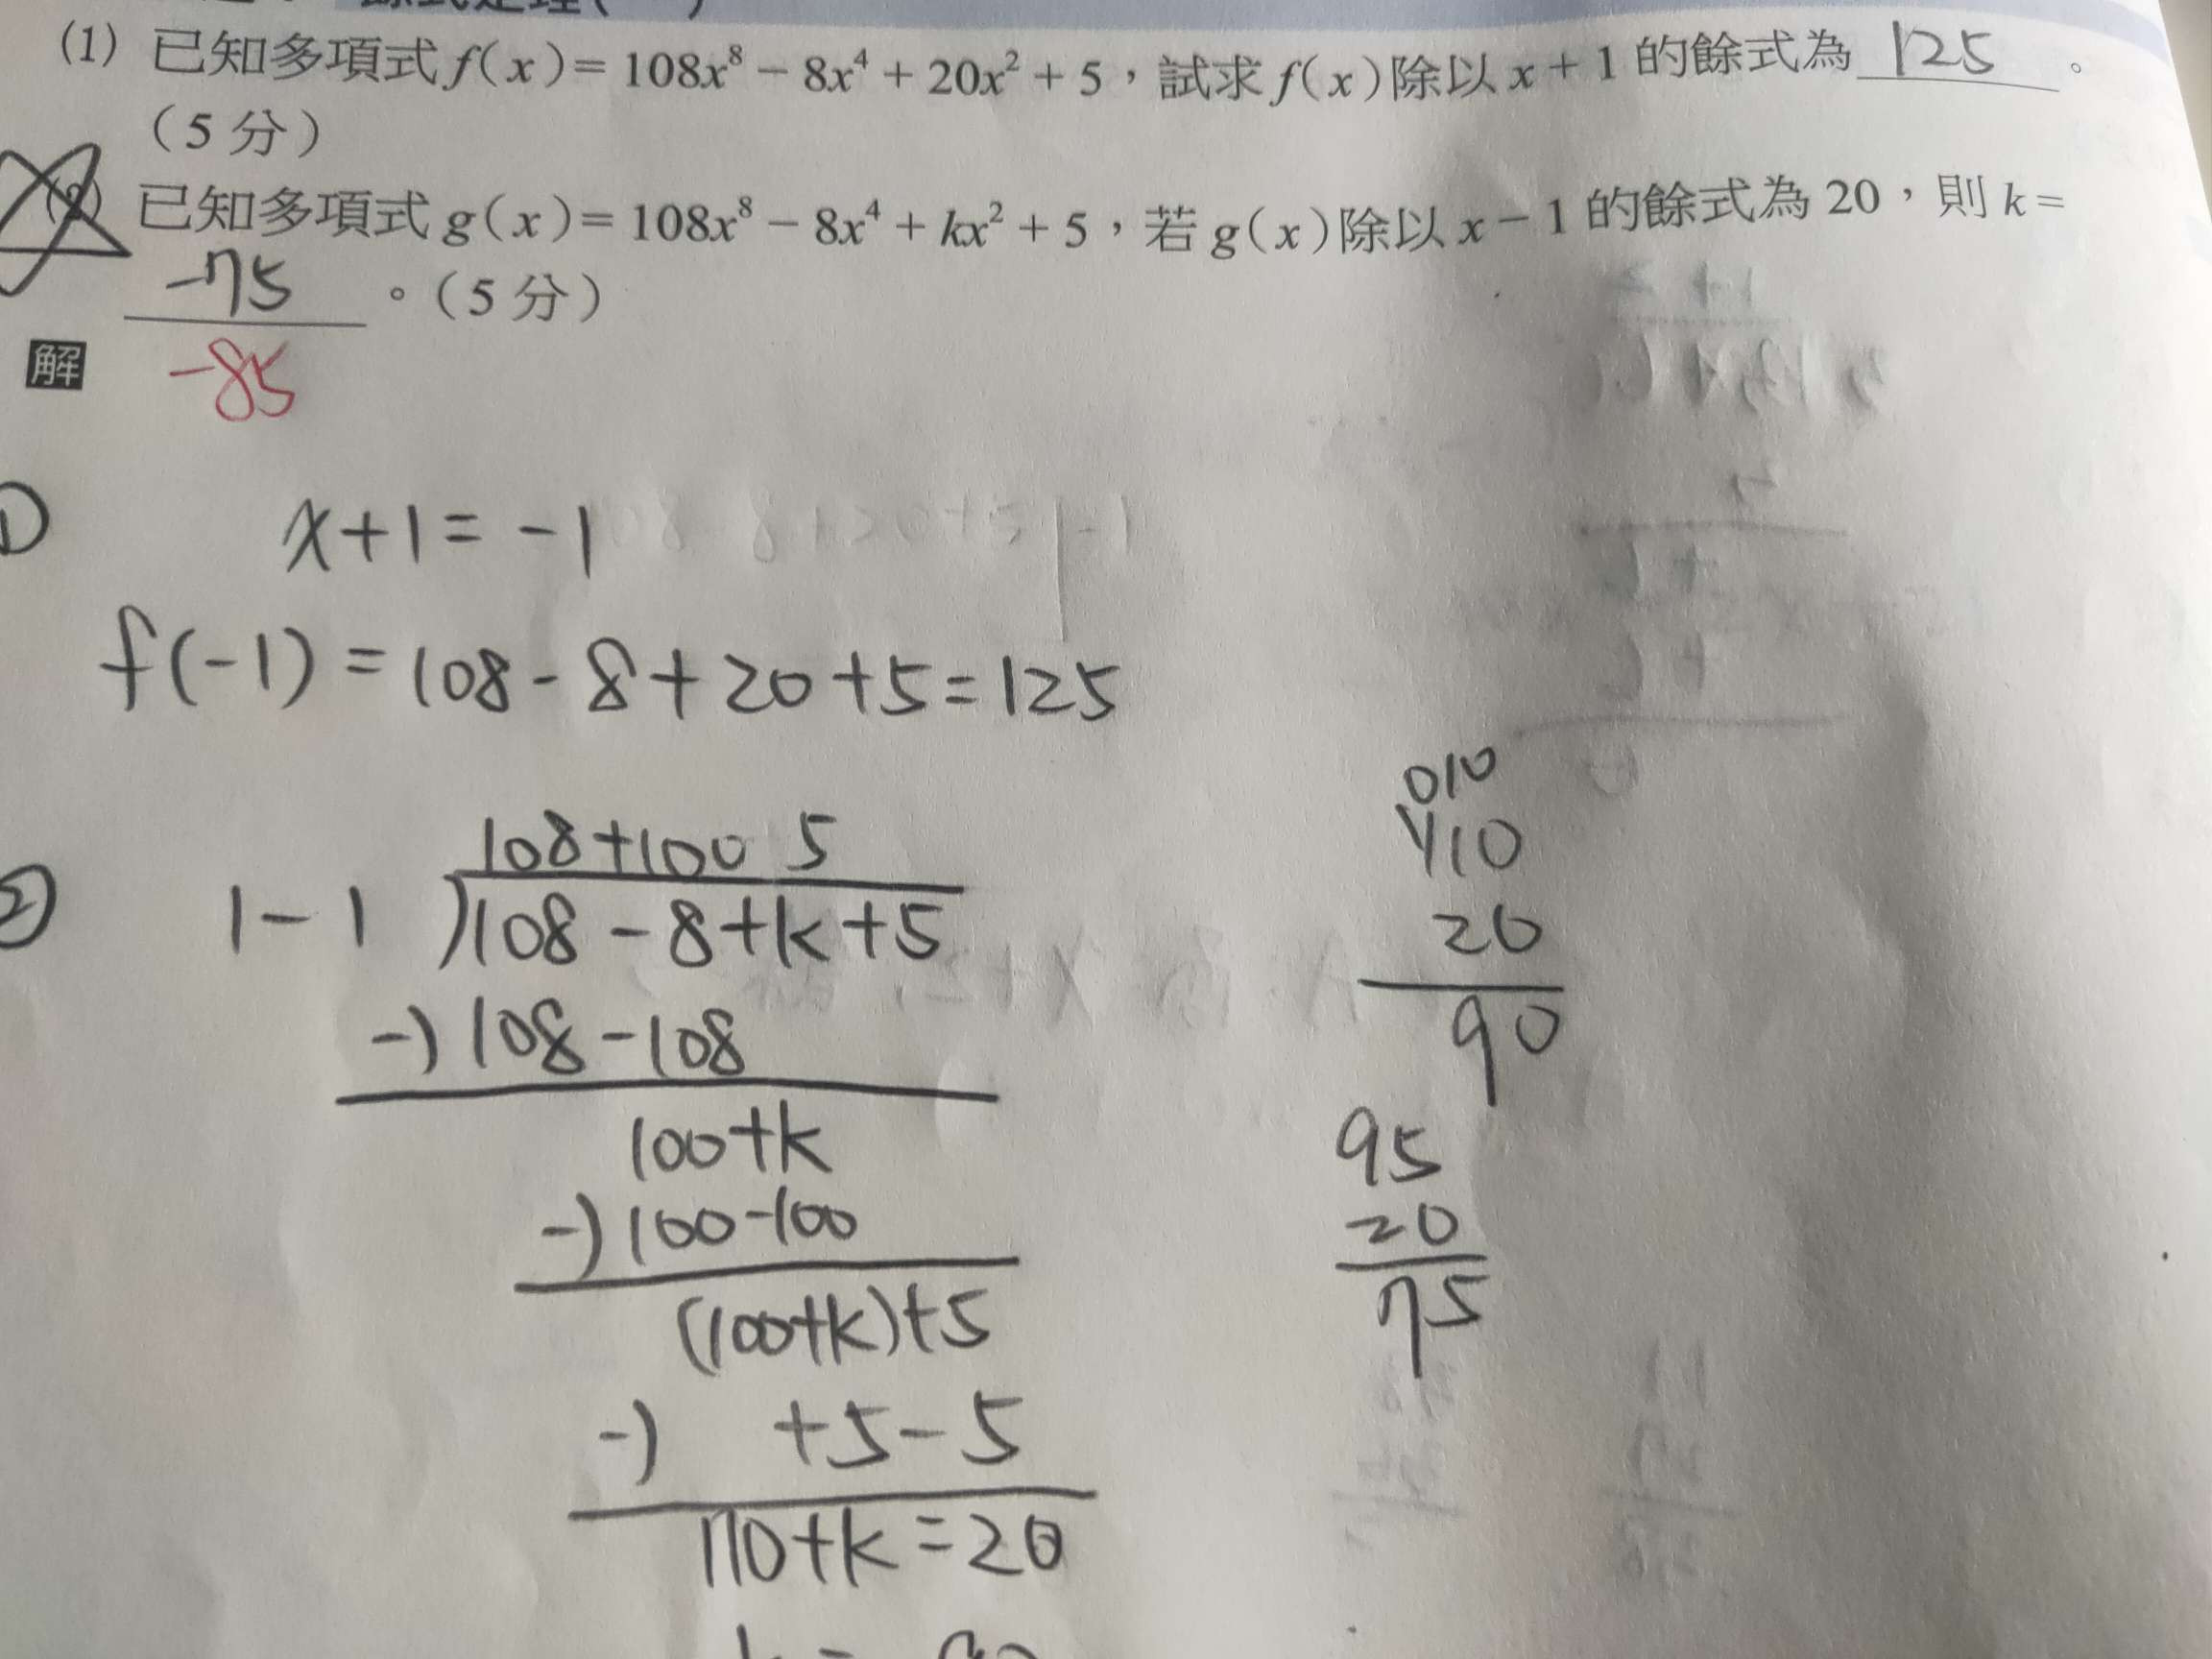 (1) 已知多項式 f(x)= 108x⁸ − 8x⁴ + 20x² + 5，試求 f(x)除以 x + 1 的餘式為 125 。
（5 分）
(2) 已知多項式 g(x)= 108x⁸ − 8x⁴ + kx² + 5，若 g(x)除以 x − 1 的餘式為 20，則 k =
-75 。（5 分）
解 -85
① x+1 = -1
f(-1) = 108 - 8 + 20 + 5 = 125
010
110
20
90
108+100 5
② 1 - 1 )108 - 8 + k + 5
-) 108 - 108
100+k
-) 100 - 100
(100+k)+5
-) +5 - 5
110+k = 20
95
20
75